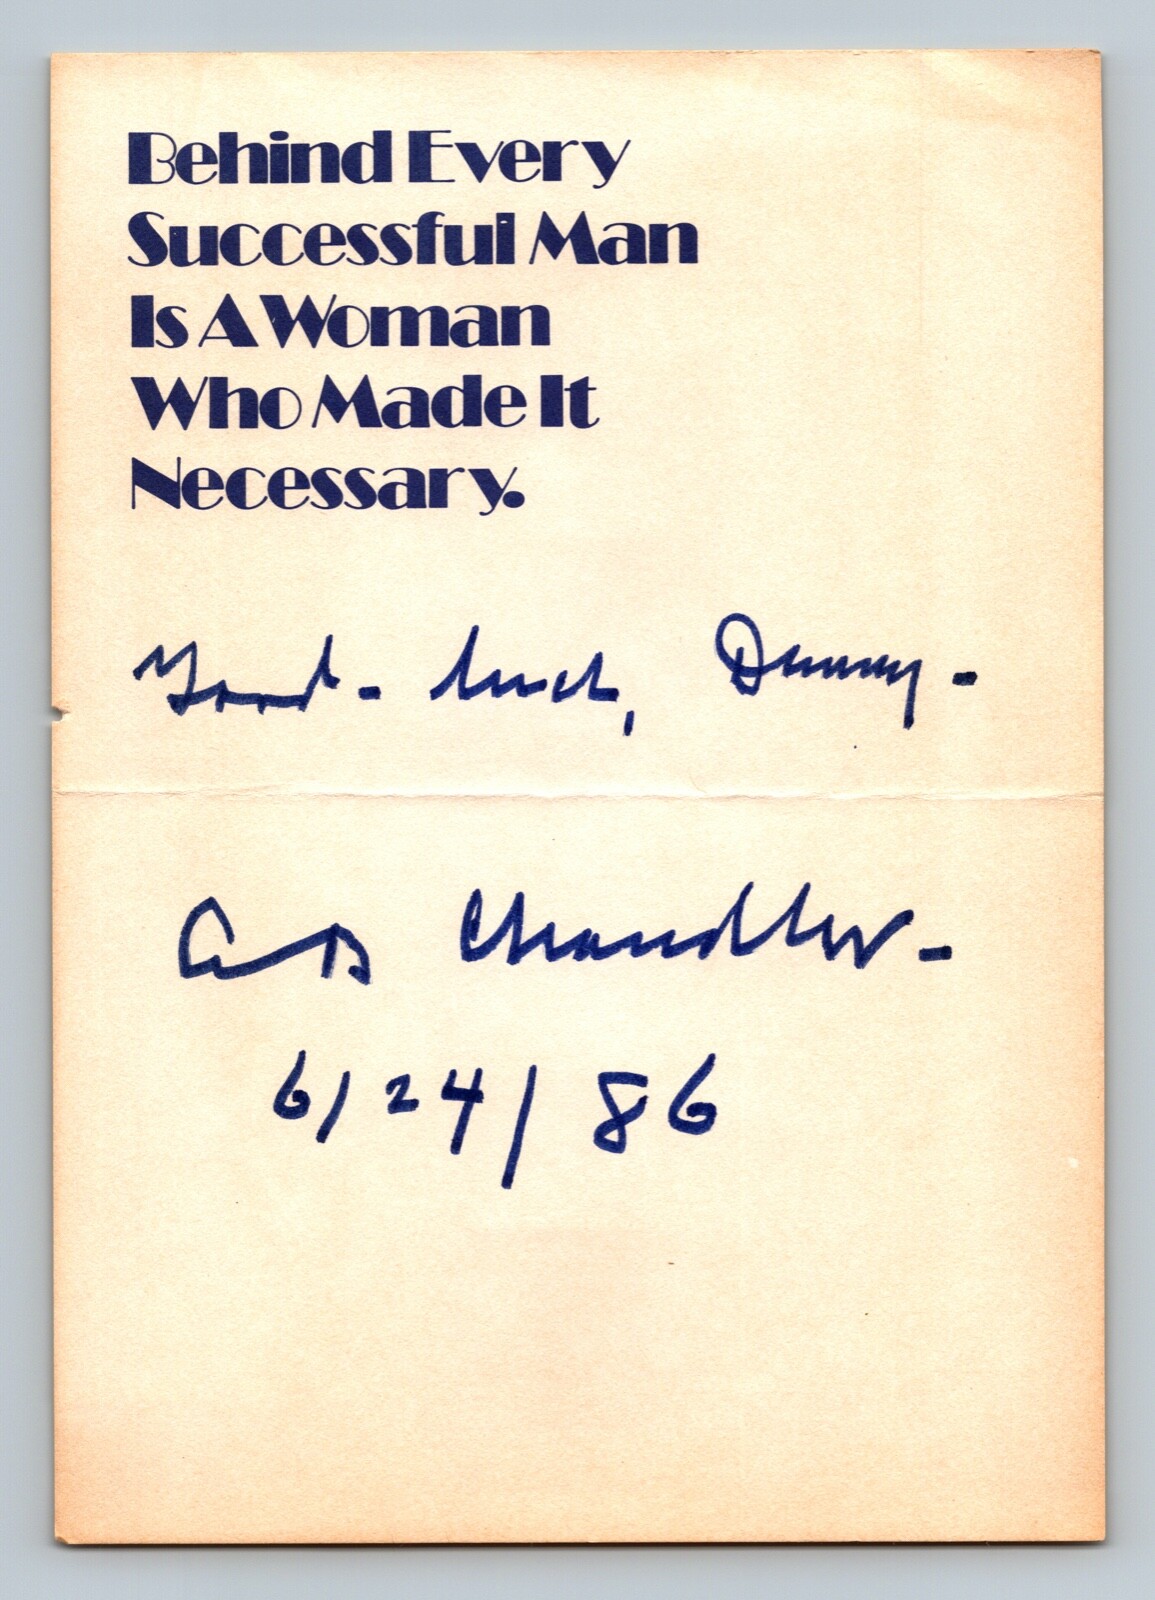 Behind Every
Successful Man
Is A Woman
Who Made It
Necessary.
Good - luck, Danny -
A B Chandler -
6/24/86